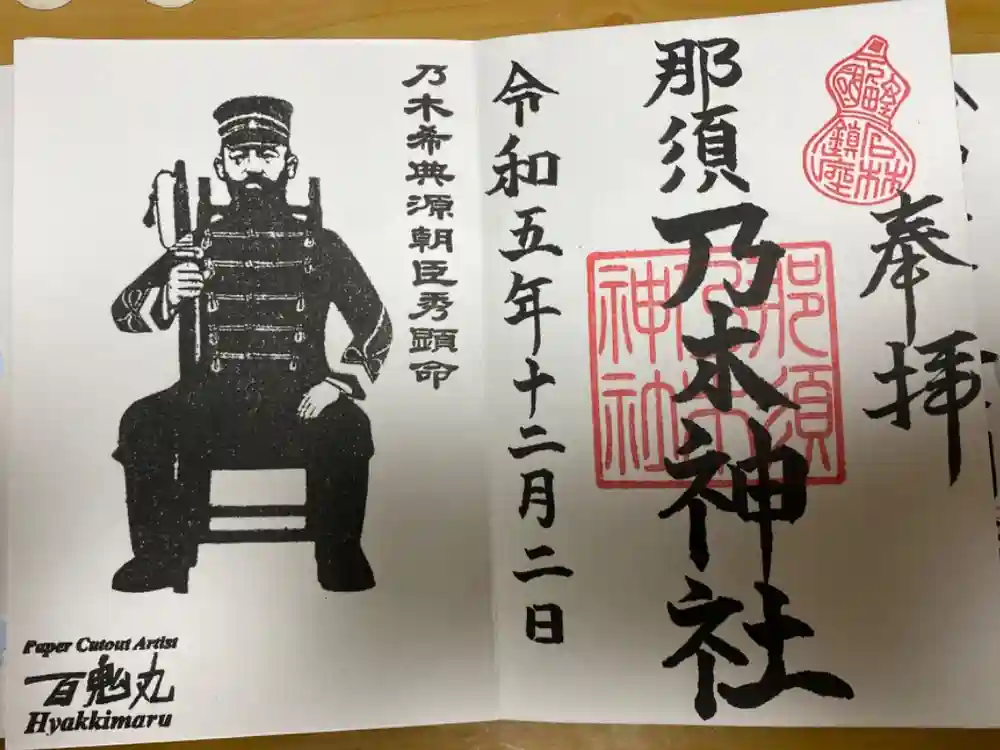 奉拝
那須乃木神社
那須乃木神社
鎮座
令和五年十二月二日
乃木希典源朝臣秀顕命
Paper Cutout Artist
百鬼丸
Hyakkimaru